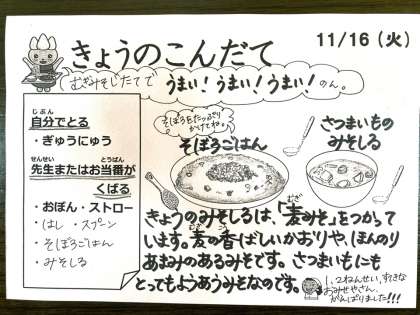 きょうのこんだて
11/16 (火)
むぎみそじたてで うまい!うまい!うまい!のん。
じぶん
自分でとる
・ぎゅうにゅう
せんせい とうばん
先生またはお当番が
くばる
・おぼん・ストロー
・はし・スプーン
・そぼろごはん
・みそしる
そぼろをたっぷり
かけてね。
そぼろごはん
さつまいもの
みそしる
きょうのみそしるは、「麦みそ」をつかって
むぎ
います。麦の香ばしいかおりや、ほんのり
あまみのあるみそです。さつまいもにも
とってもようあうみそなのです。
1、2ねんせい、すてきな
おみせやさん、
がんばりました!!!